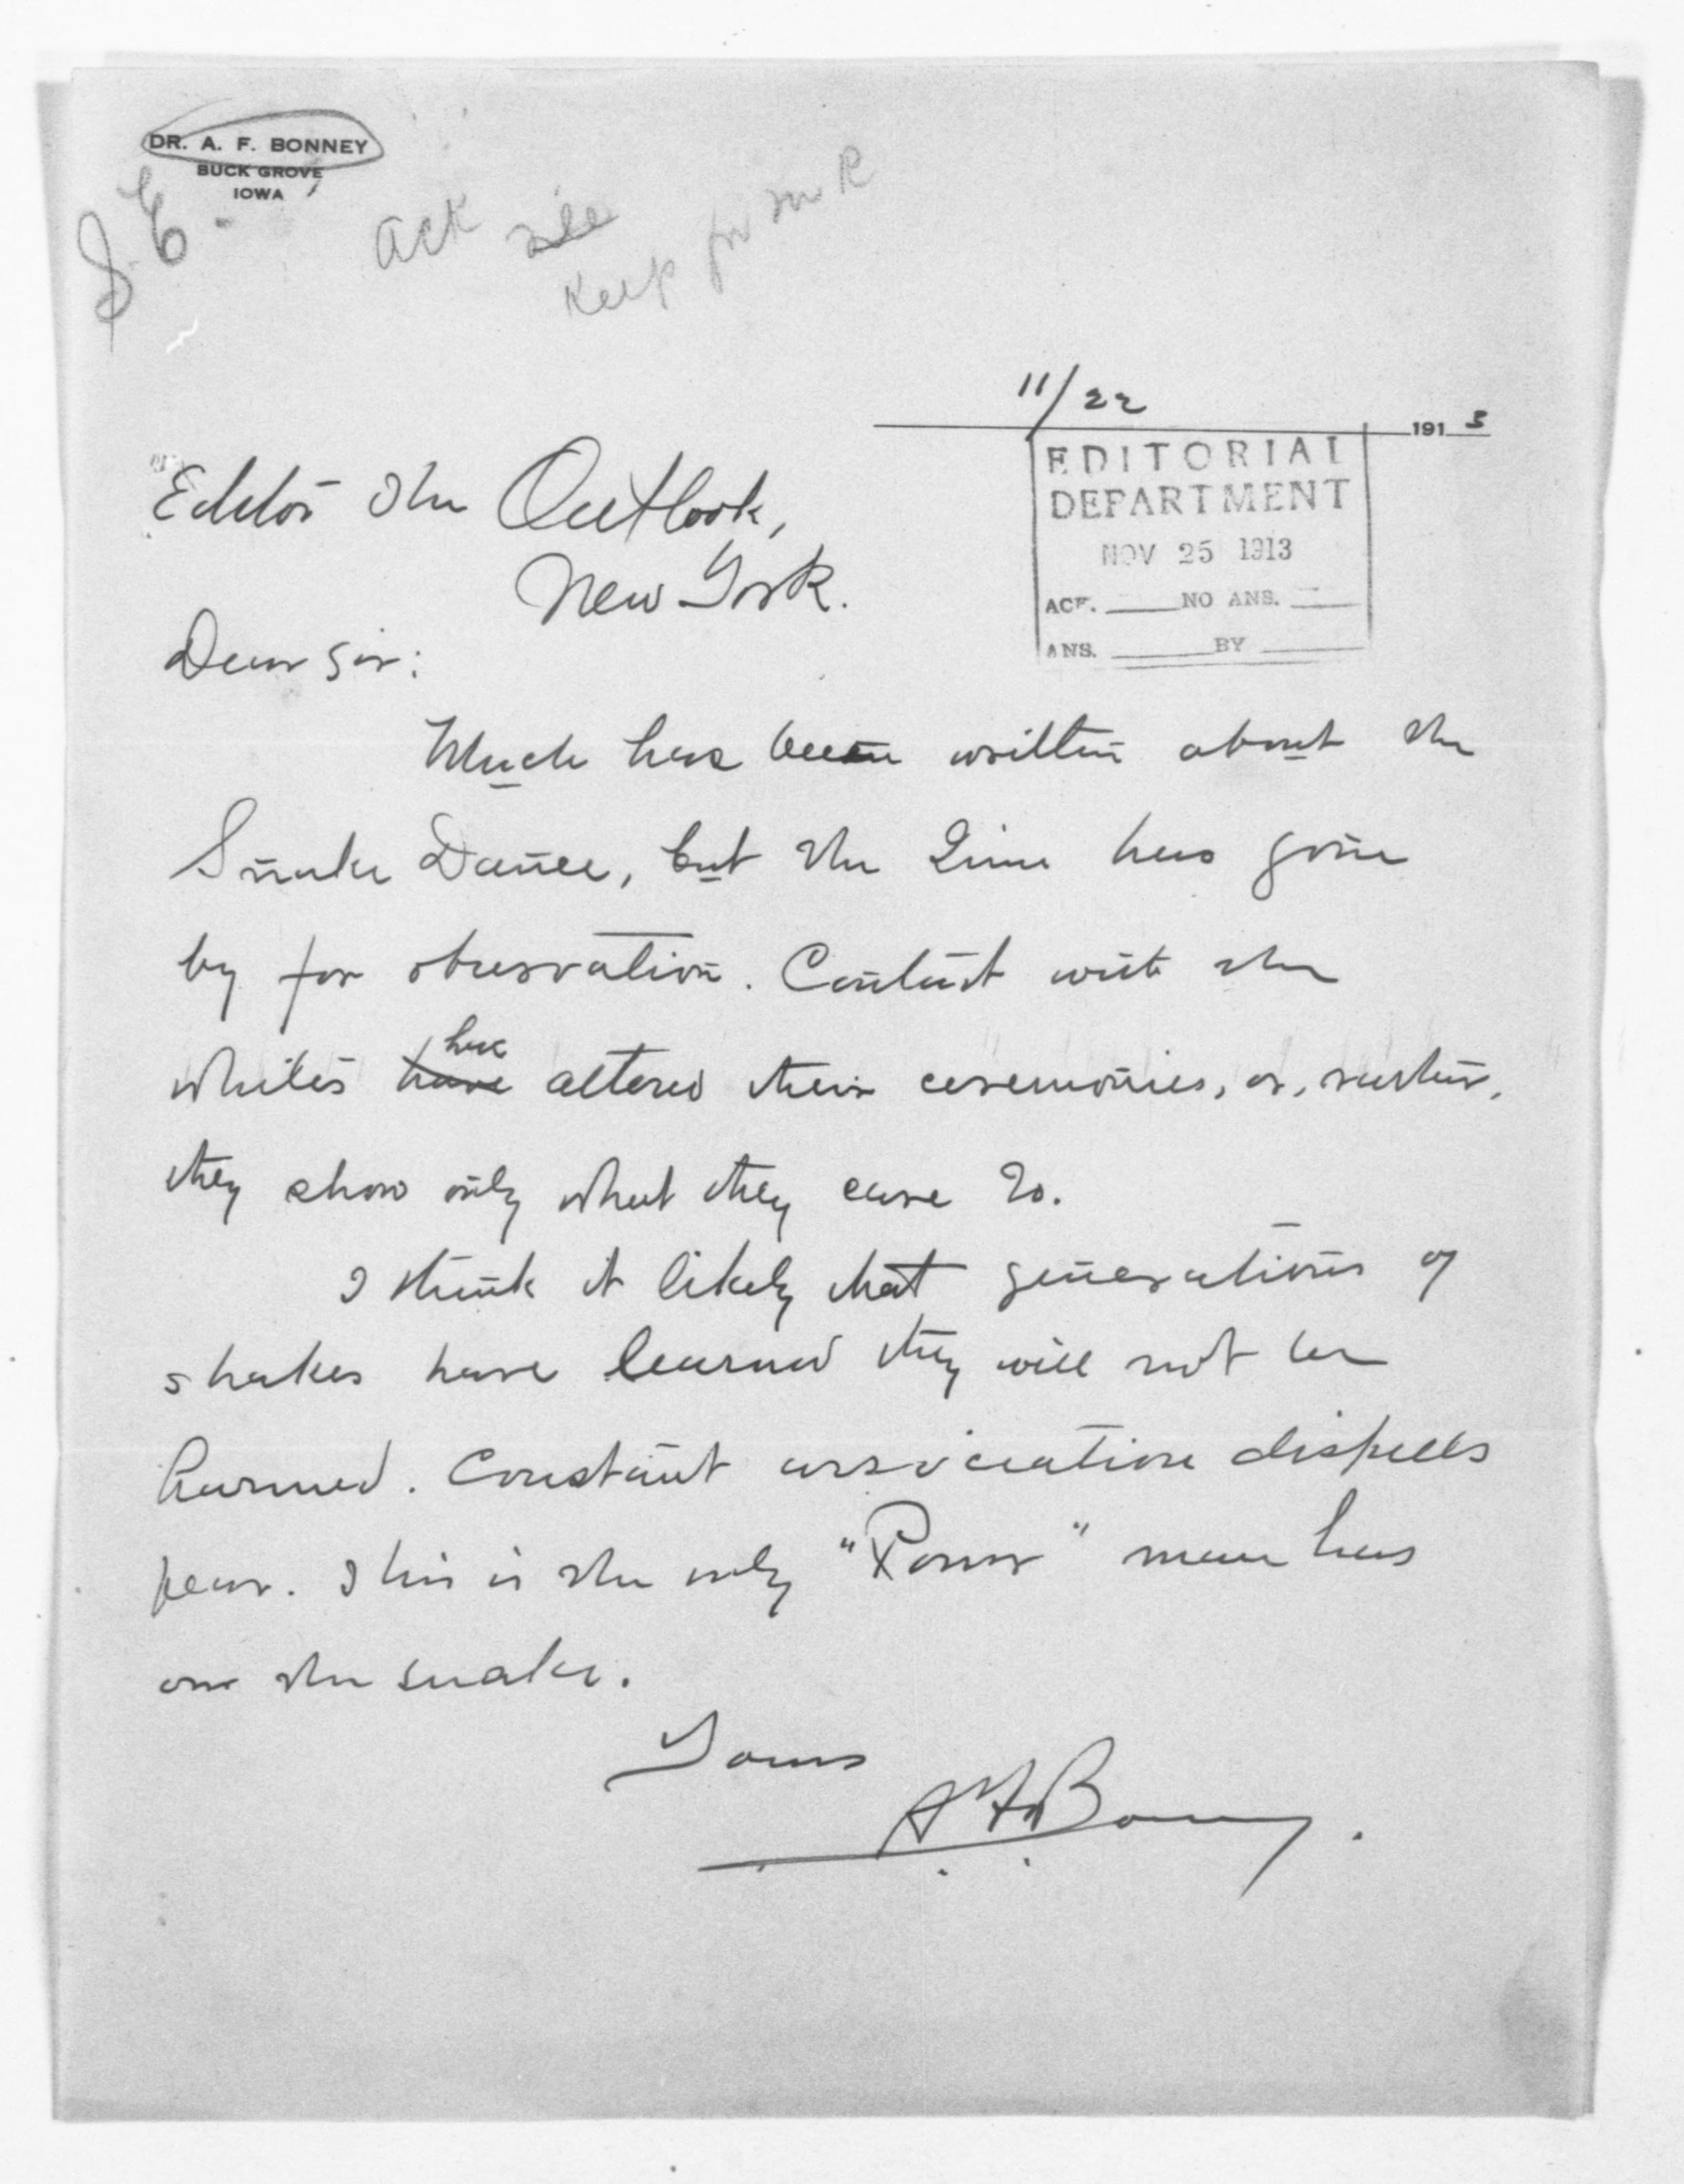 DR. A. F. BONNEY
BUCK GROVE
IOWA
Ack
Keep for Mr R
11/22 1913
EDITORIAL
DEPARTMENT
NOV 25 1913
ACK. NO ANS.
ANS. BY
Editor The Outlook,
New York.
Dear Sir:
Much has been written about the
Snake Dance, but the time has gone
by for observation. Contact with the
whites have has altered their ceremonies, or, rather,
they show only what they care to.
I think it likely that generations of
snakes have learned they will not be
harmed. Constant association dispells
fear. This is the only "Power" man has
over the snake.
Yours
A F Bonney.